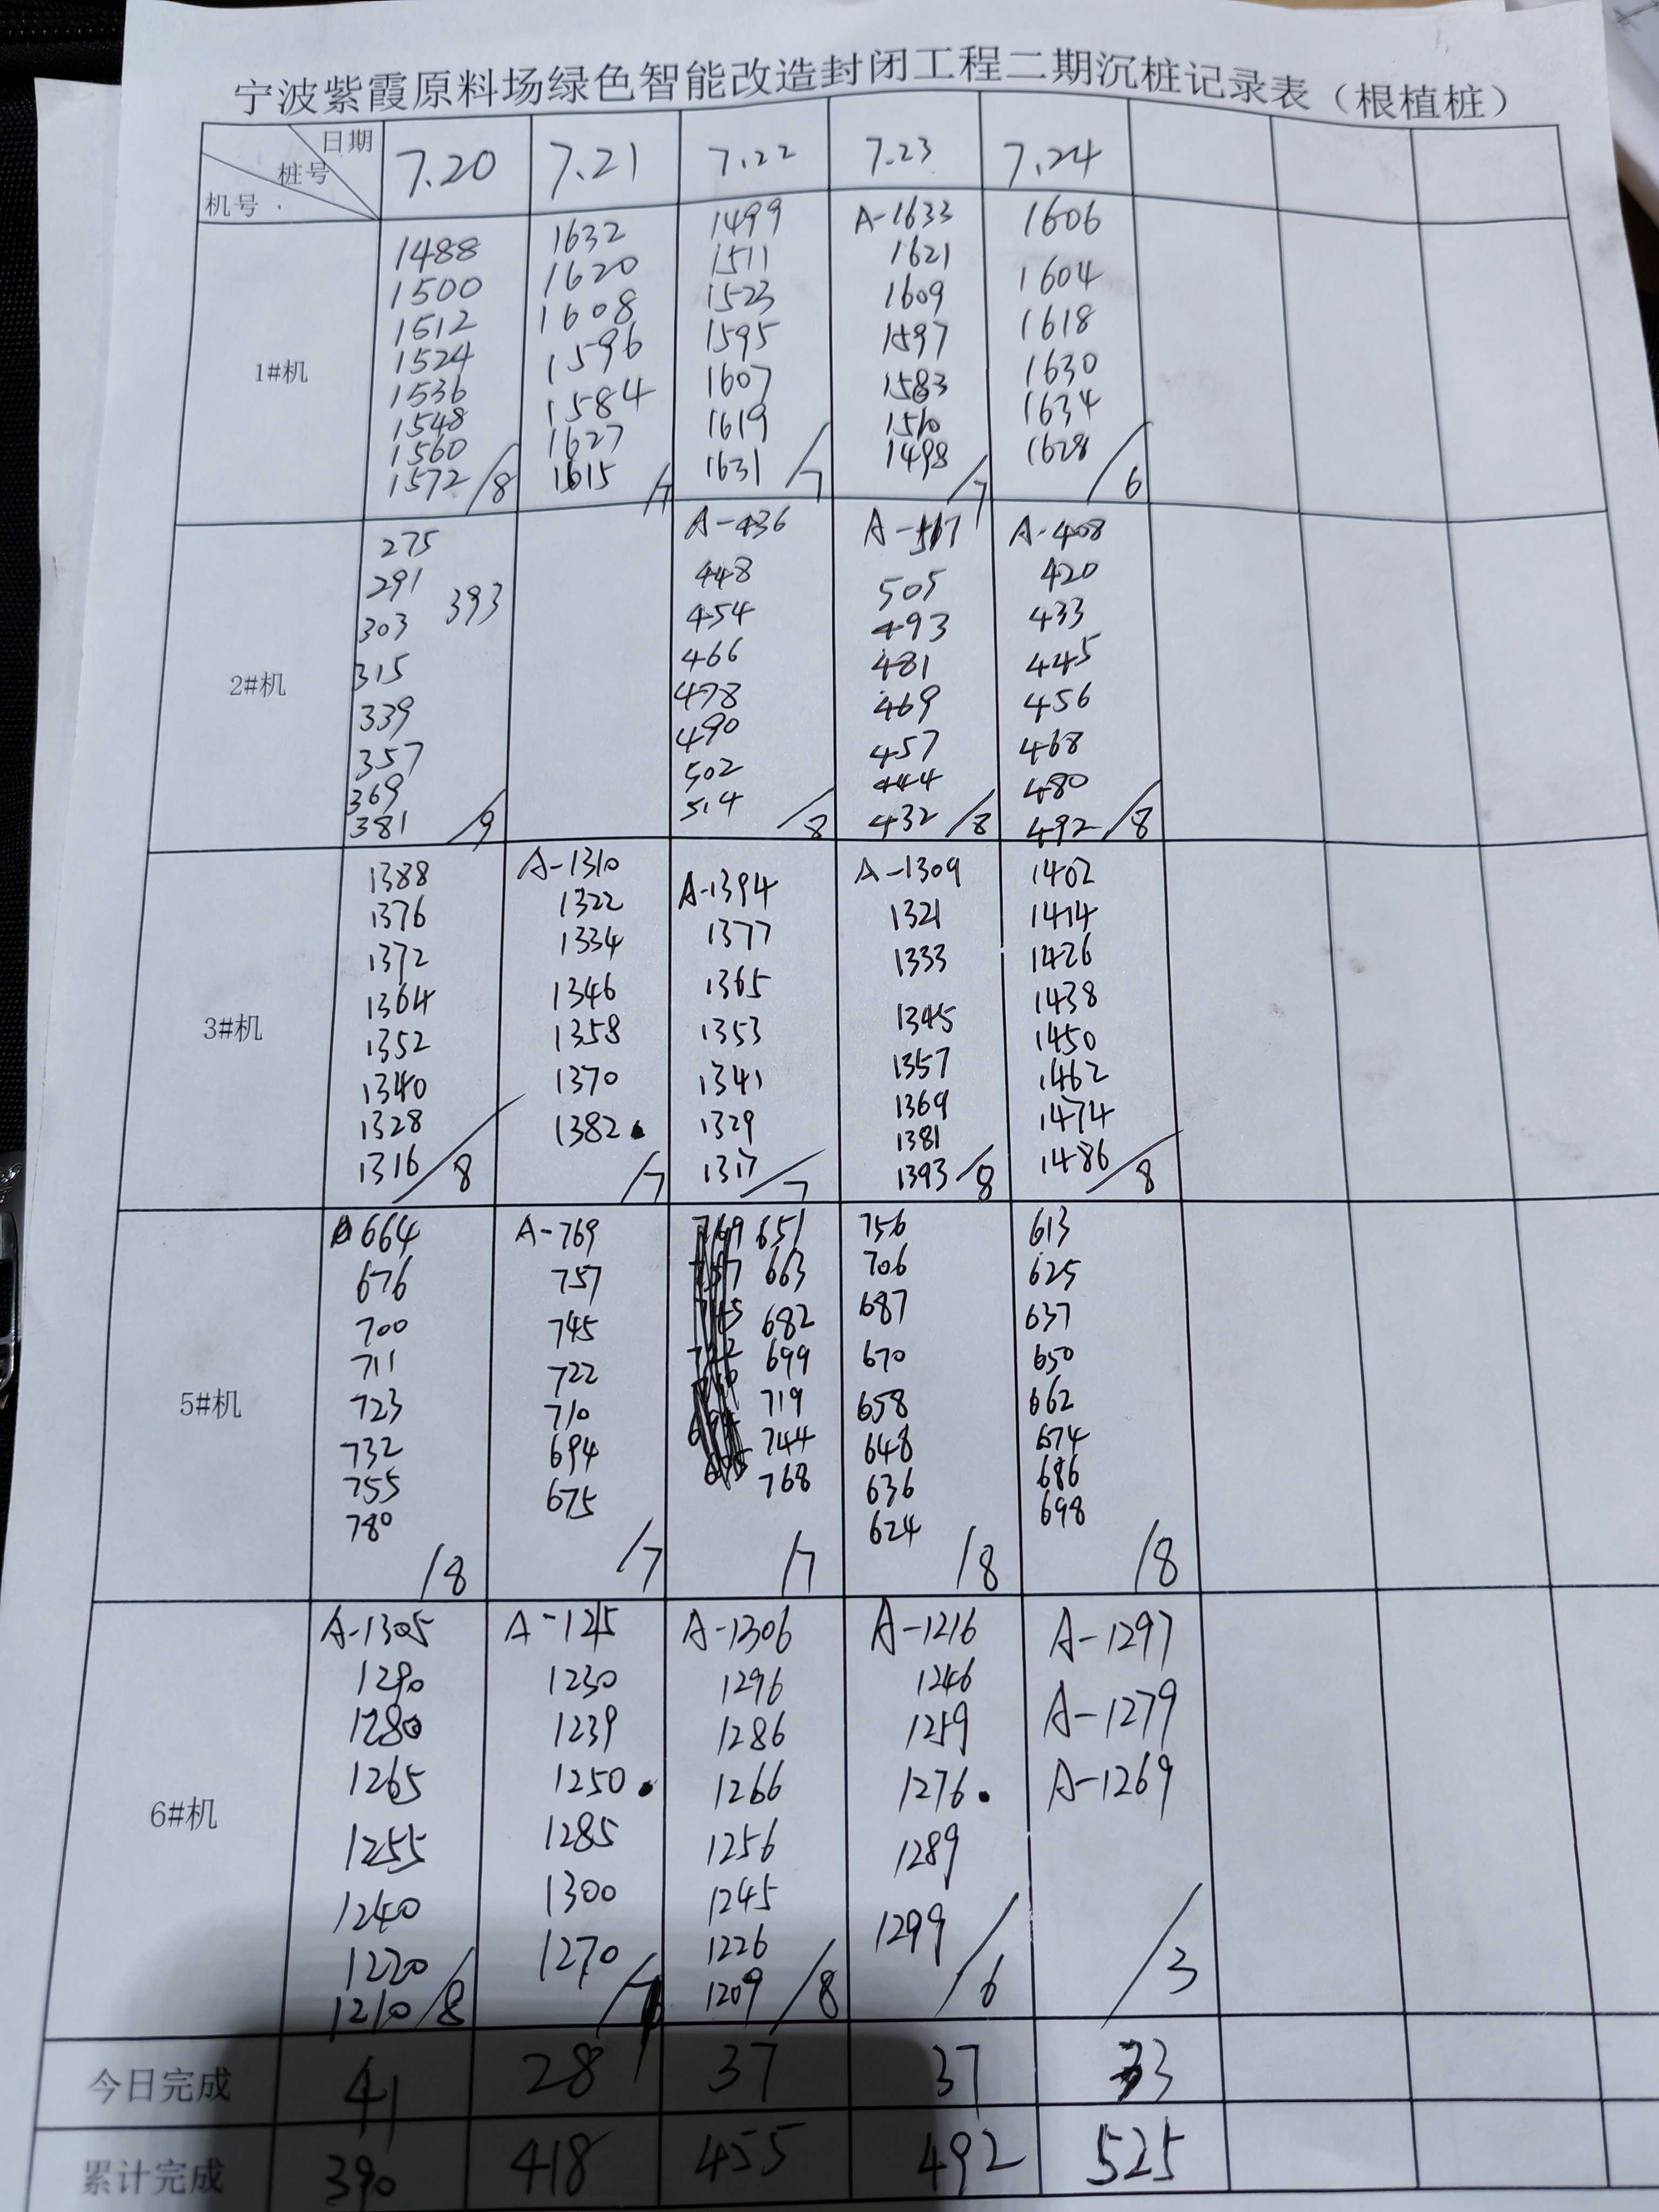 宁波紫霞原料场绿色智能改造封闭工程二期沉桩记录表（根植桩）
日期
桩号
机号
7.20
7.21
7.22
7.23
7.24
1#机
1488
1500
1512
1524
1536
1548
1560
1572 /8
1632
1620
1608
1596
1584
1627
1615 /7
1499
1511
1523
1595
1607
1619
1631 /7
A-1633
1621
1609
1597
1583
1510
1498 /7
1606
1604
1618
1630
1634
1628 /6
2#机
275
291
393
303
315
339
357
369
381 /9
A-436
448
454
466
478
490
502
514 /8
A-517
505
493
481
469
457
444
432 /8
A-408
420
433
445
456
468
480
492 /8
3#机
1388
1376
1372
1364
1352
1340
1328
1316 /8
A-1310
1322
1334
1346
1358
1370
1382
/7
A-1394
1377
1365
1353
1341
1329
1317 /7
A-1309
1321
1333
1345
1357
1369
1381
1393 /8
1402
1414
1426
1438
1450
1462
1474
1486 /8
5#机
664
676
700
711
723
732
755
780
/8
A-769
757
745
722
710
694
675
/7
651
663
682
699
719
744
768
/7
756
706
687
670
658
648
636
624
/8
613
625
637
650
662
674
686
698
/8
6#机
A-1305
1290
1280
1265
1255
1240
1220
1210 /8
A-1215
1230
1239
1250
1285
1300
1270 /7
A-1306
1296
1286
1266
1256
1245
1226
1209 /8
A-1216
1246
1259
1276
1289
1299 /6
A-1297
A-1279
A-1269
/3
今日完成
41
28
37
37
33
累计完成
390
418
455
492
525